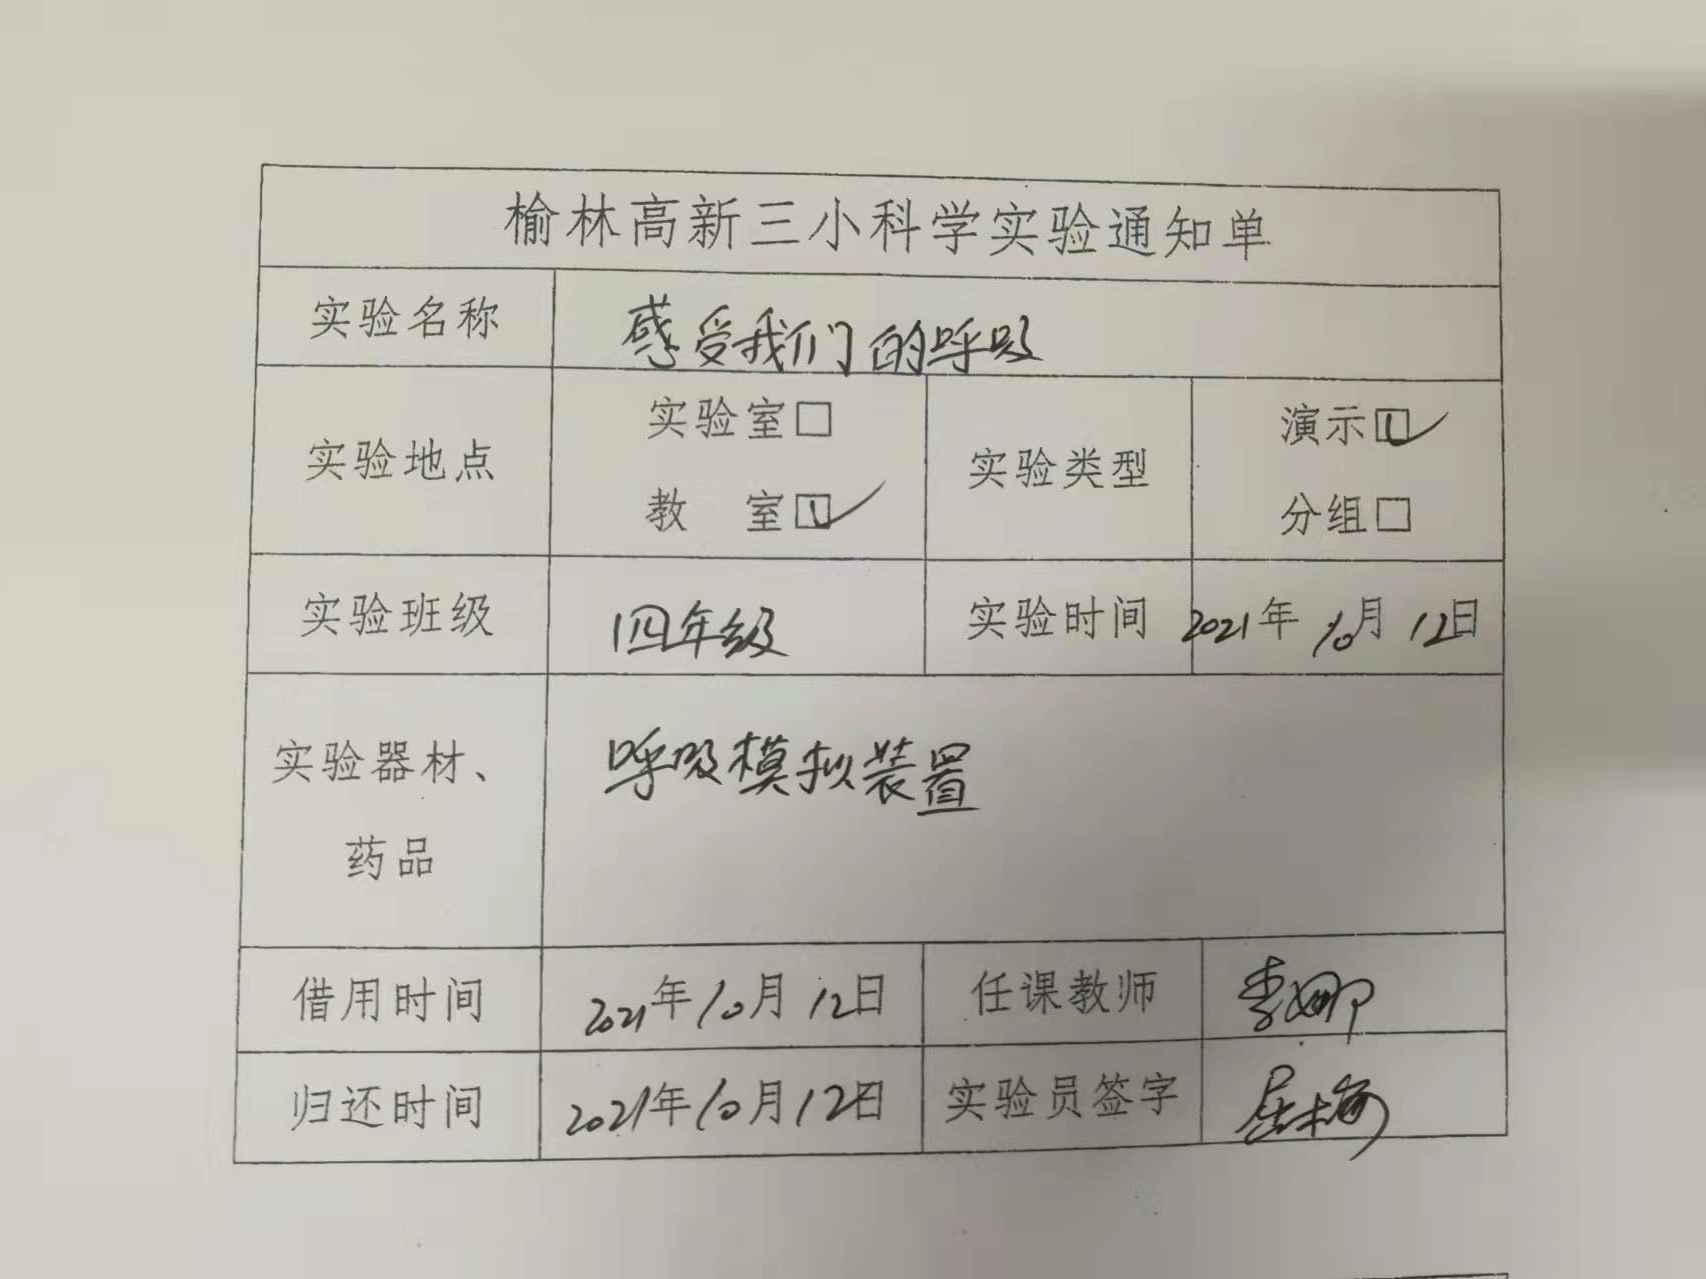 榆林高新三小科学实验通知单
实验名称 感受我们的呼吸
实验地点 实验室□ 教 室☑ 实验类型 演示☑ 分组□
实验班级 四年级 实验时间 2021年10月12日
实验器材、药品 呼吸模拟装置
借用时间 2021年10月12日 任课教师 李娜
归还时间 2021年10月12日 实验员签字